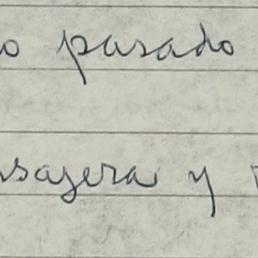 o pasado
nsajera y